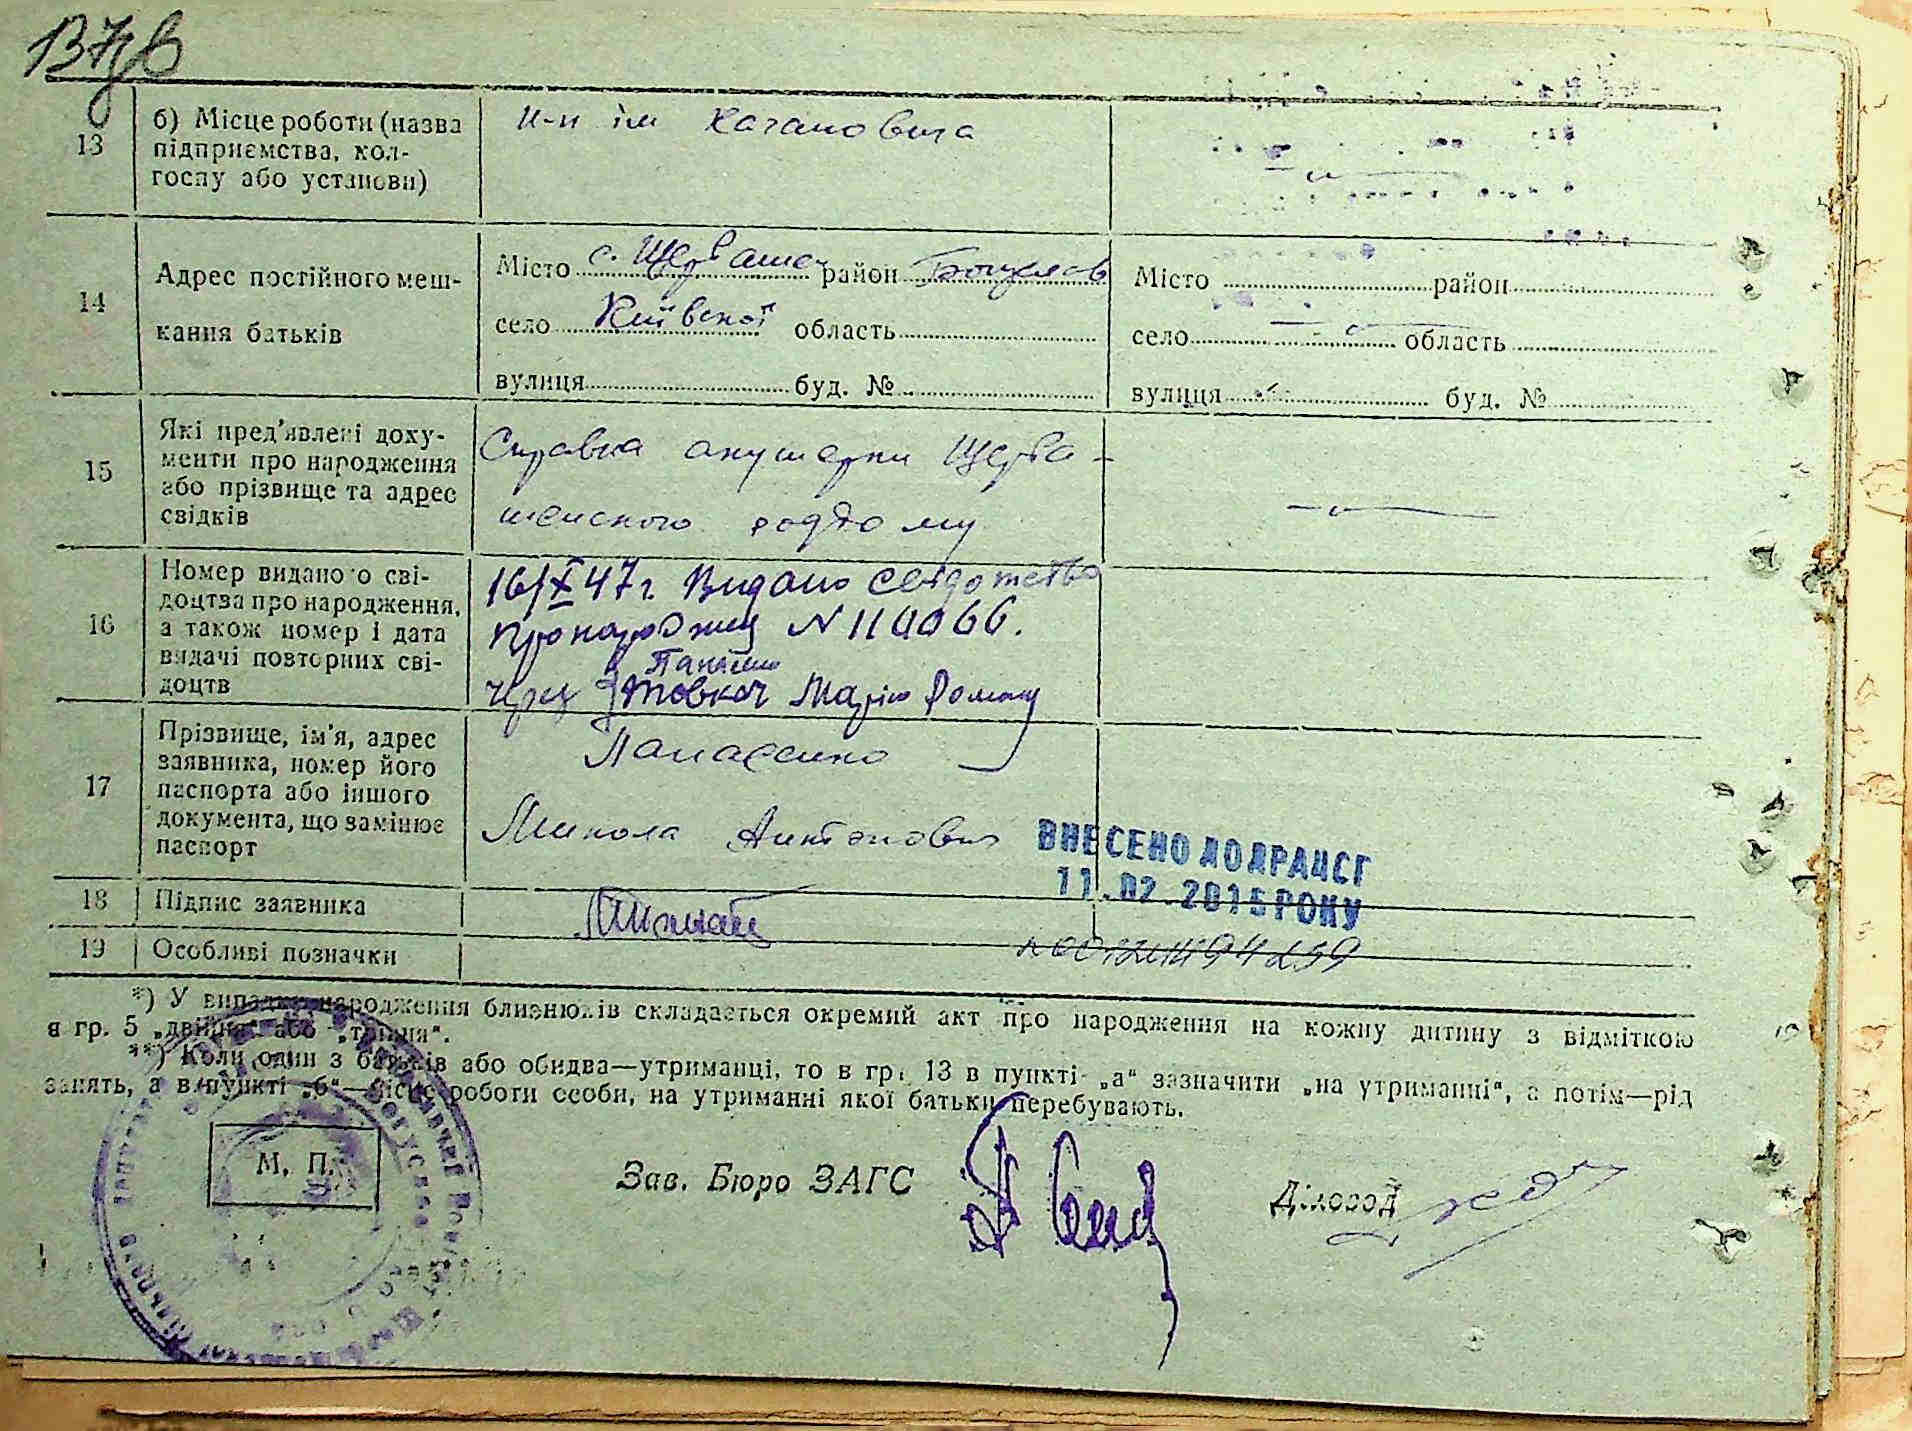 137зв
13
б) Місце роботи (назва
підприємства, кол-
госпу або установи)
к-п ім Кагановича
14
Адрес постійного меш-
кання батьків
Місто с. Щербашен район Богуслав
село Київської область
вулиця буд. №
Місто район
село область
вулиця буд. №
15
Які пред'явлені доку-
менти про народження
або прізвище та адрес
свідків
Справка акушерки Щерба-
шенского роддому
16
Номер виданого сві-
доцтва про народження,
а також номер і дата
видачі повторних сві-
доцтв
16/X 47 г. Видано свідотство
про народжен N 110066.
Панасен
через Товкач Марію Роман
17
Прізвище, ім'я, адрес
заявника, номер його
паспорта або іншого
документа, що замінює
паспорт
Панасенко
Микола Антонович
ВНЕСЕНО ДО ДРАЦСГ
11.02.2015 РОКУ
18
Підпис заявника
19
Особливі позначки
*) У випадку народження близнюків складається окремий акт про народження на кожну дитину з відміткою
в гр. 5 „двійня“ або „трійня“.
**) Коли один з батьків або обидва—утриманці, то в гр. 13 в пункті „а“ зазначити „на утриманні“, а потім—рід
занять, а в пункті „б“—місце роботи особи, на утриманні якої батьки перебувають.
М. П.
Зав. Бюро ЗАГС
Діловод